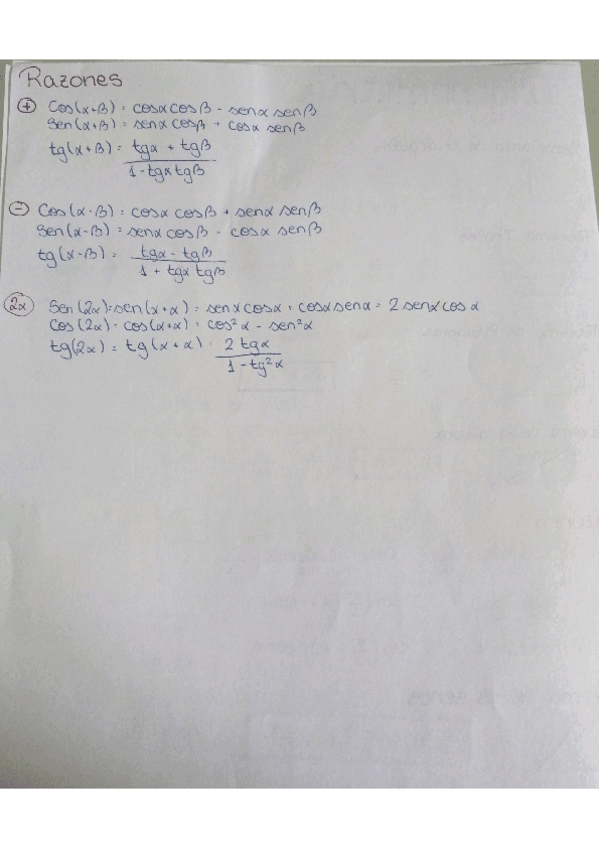 Razones
⊕ Cos(α+β) = cosα cosβ - senα senβ
Sen(α+β) = senα cosβ + cosα senβ
tg(α+β) = tgα + tgβ
1 - tgα tgβ
⊖ Cos(α-β) = cosα cosβ + senα senβ
Sen(α-β) = senα cosβ - cosα senβ
tg(α-β) = tgα - tgβ
1 + tgα tgβ
2α Sen(2α) = sen(α+α) = senα cosα + cosα senα = 2 senα cosα
Cos(2α) = cos(α+α) = cos²α - sen²α
tg(2α) = tg(α+α) = 2 tgα
1 - tg²α